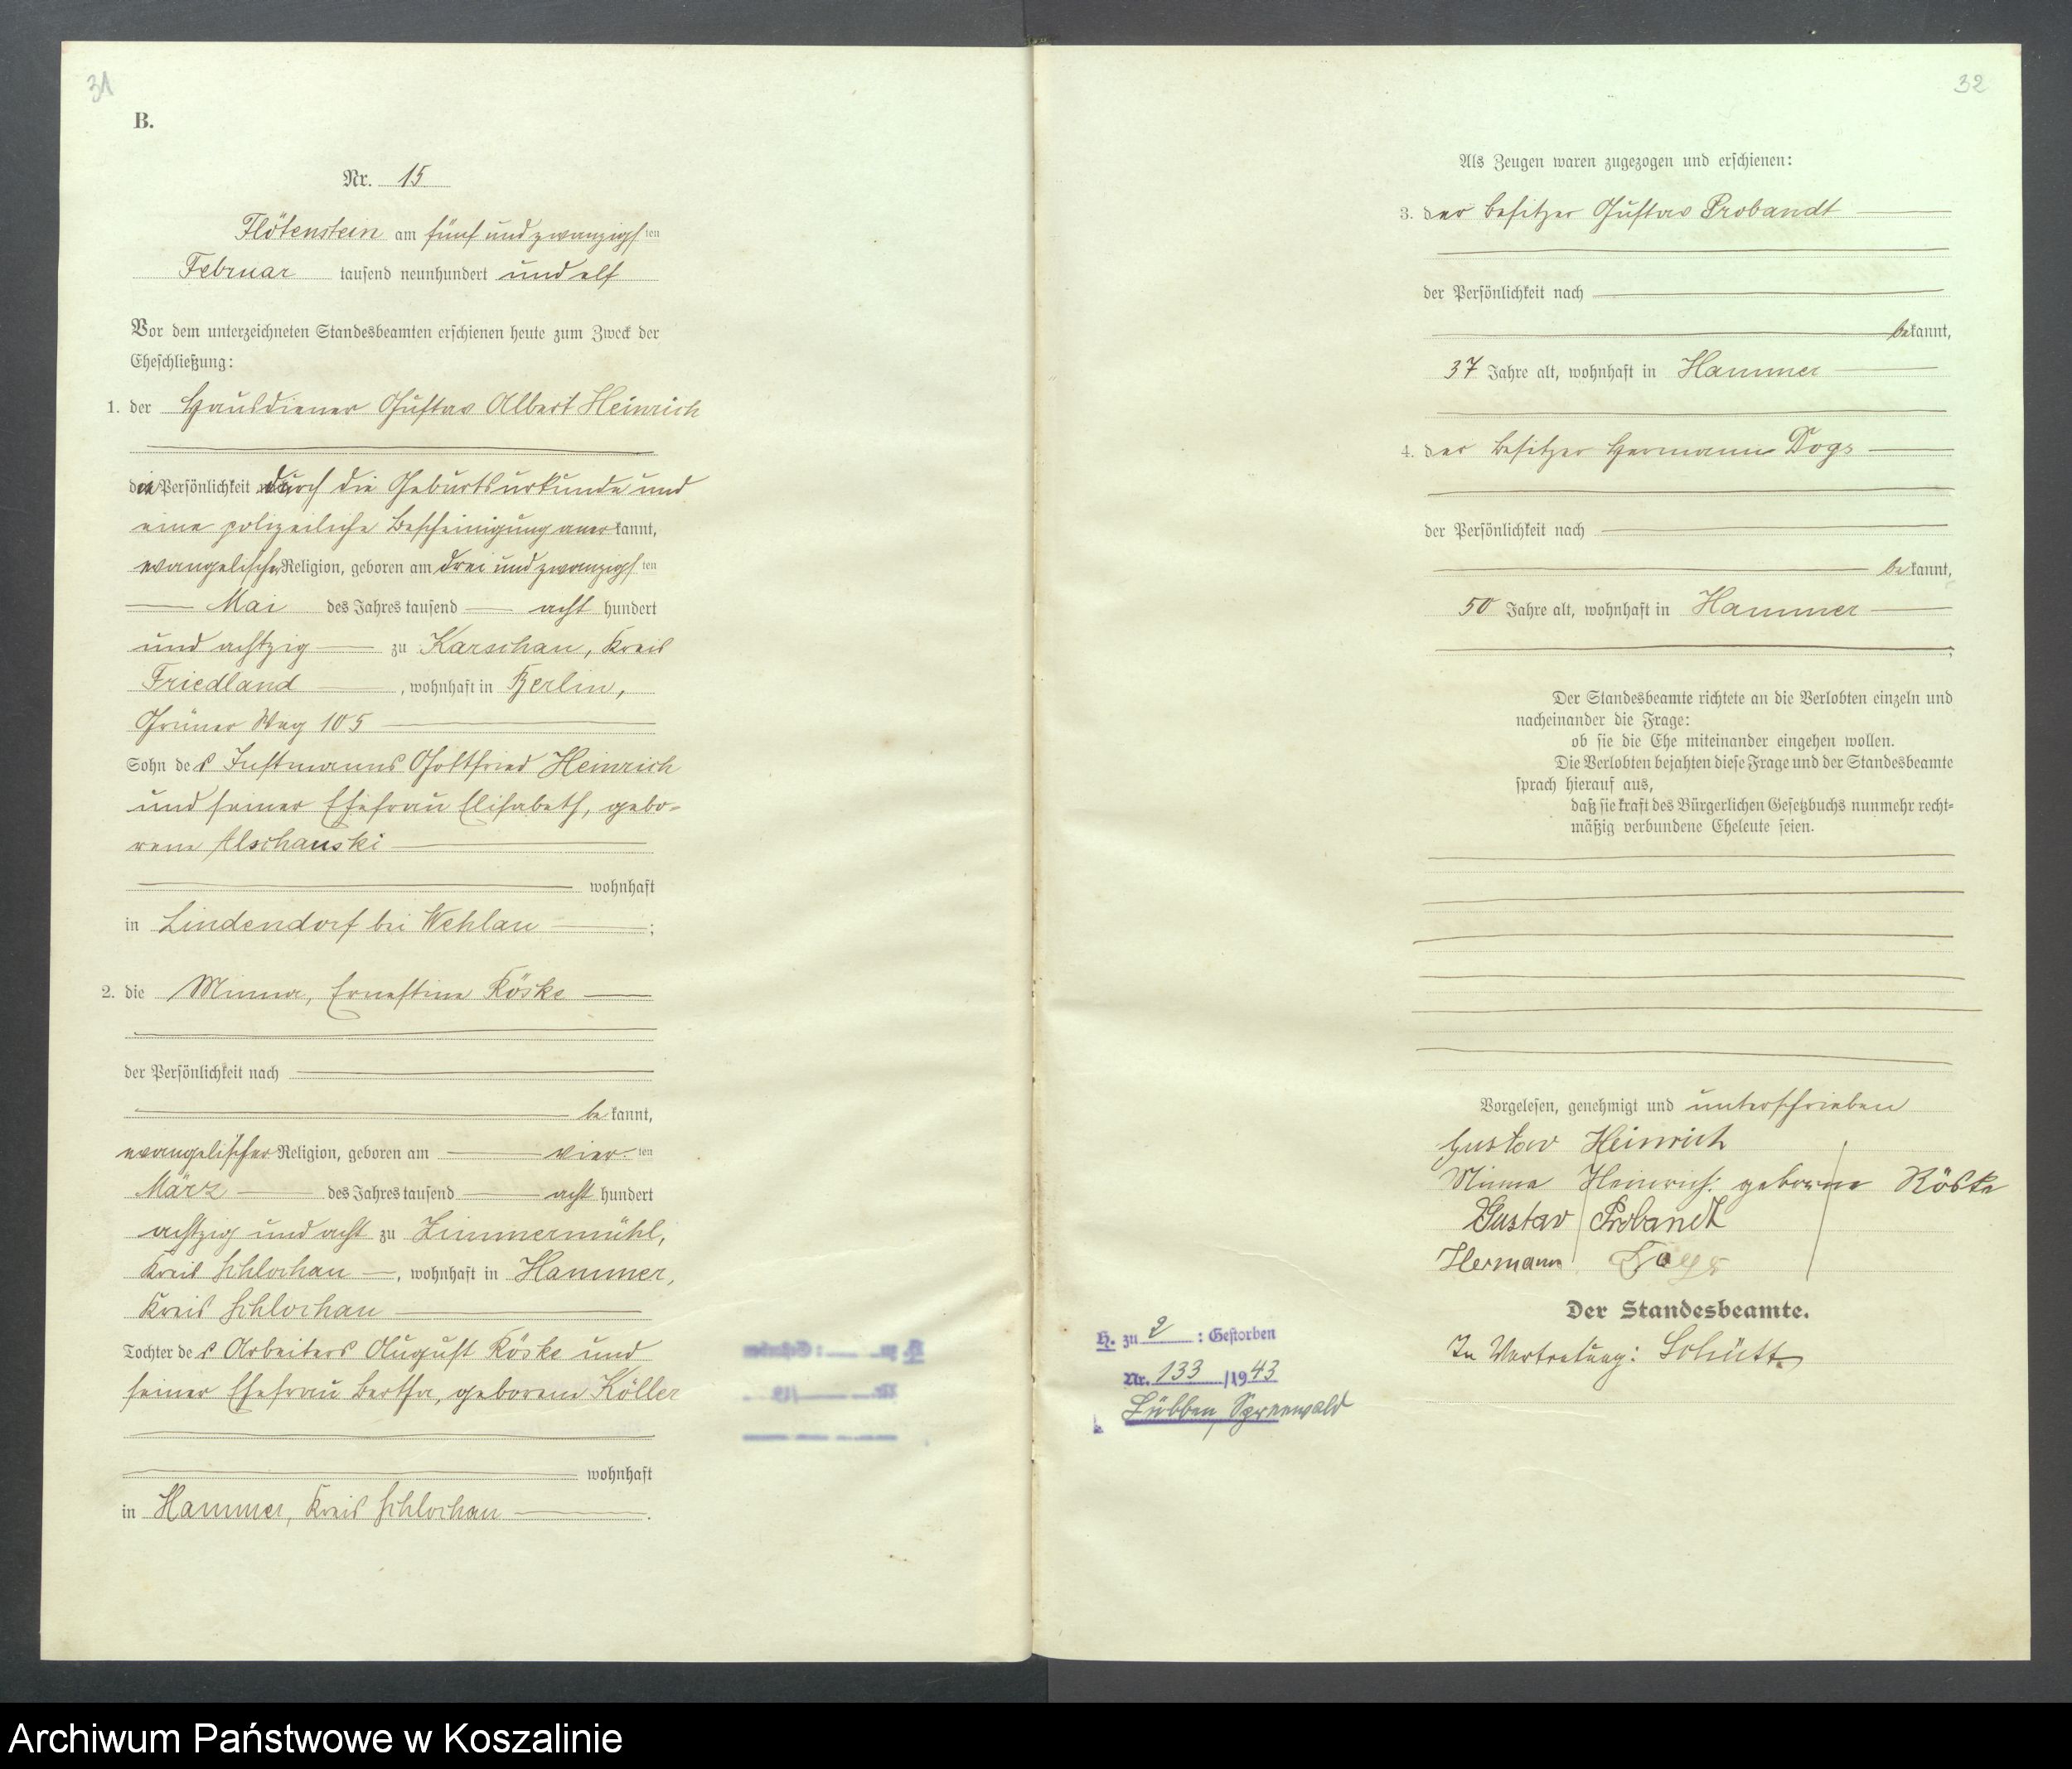 31
B.
Nr. 15
Flötenstein am fünf und zwanzigsten
Februar tausend neunhundert und elf
Vor dem unterzeichneten Standesbeamten erschienen heute zum Zweck der
Eheschließung:
1. der Hausdiener Gustav Albert Heinrich
die Persönlichkeit durch die Geburtsurkunde und
eine polizeiliche Bescheinigung anerkannt,
evangelischer Religion, geboren am drei und zwanzigsten
Mai des Jahres tausend acht hundert
und achtzig zu Karschau, Kreis
Friedland, wohnhaft in Berlin,
Grüner Weg 105
Sohn des Instmanns Gottfried Heinrich
und seiner Ehefrau Elisabeth, gebo-
rene Alschauski
wohnhaft
in Lindendorf bei Wehlau;
2. die Minna, Ernestine Röske
der Persönlichkeit nach
bekannt,
evangelischer Religion, geboren am vierten
März des Jahres tausend acht hundert
achtzig und acht zu Zimmermühl,
Kreis Schlochau, wohnhaft in Hammer,
Kreis Schlochau
Tochter des Arbeiters August Röske und
seiner Ehefrau Bertha, geborene Köller
wohnhaft
in Hammer, Kreis Schlochau.
32
Als Zeugen waren zugezogen und erschienen:
3. der Besitzer Gustav Probandt
der Persönlichkeit nach
bekannt,
37 Jahre alt, wohnhaft in Hammer
4. der Besitzer Hermann Dogs
der Persönlichkeit nach
bekannt,
50 Jahre alt, wohnhaft in Hammer
;
Der Standesbeamte richtete an die Verlobten einzeln und
nacheinander die Frage:
ob sie die Ehe miteinander eingehen wollen.
Die Verlobten bejahten diese Frage und der Standesbeamte
sprach hierauf aus,
daß sie kraft des Bürgerlichen Gesetzbuchs nunmehr recht-
mäßig verbundene Eheleute seien.
Vorgelesen, genehmigt und unterschrieben
Gustav Heinrich
Minna Heinrich geborene Röske
Gustav Probandt
Hermann Dogs
Der Standesbeamte.
In Vertretung: Schütt
H. zu 2 : Gestorben
Nr. 133 /1943
Lübben, Spreewald
Archiwum Państwowe w Koszalinie